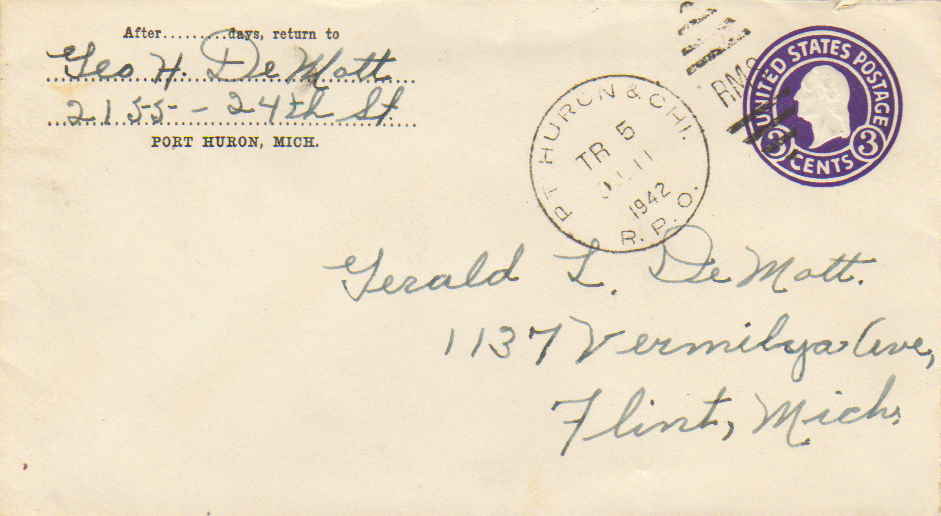 After..........days, return to
Geo H. De Mott
2155 - 24th St.
PORT HURON, MICH.
PT HURON & CHI.
TR 5
11
1942
R.P.O.
RMS
UNITED STATES POSTAGE
3 CENTS 3
Gerald L. De Mott.
1137 Vermilya Ave,
Flint, Mich.